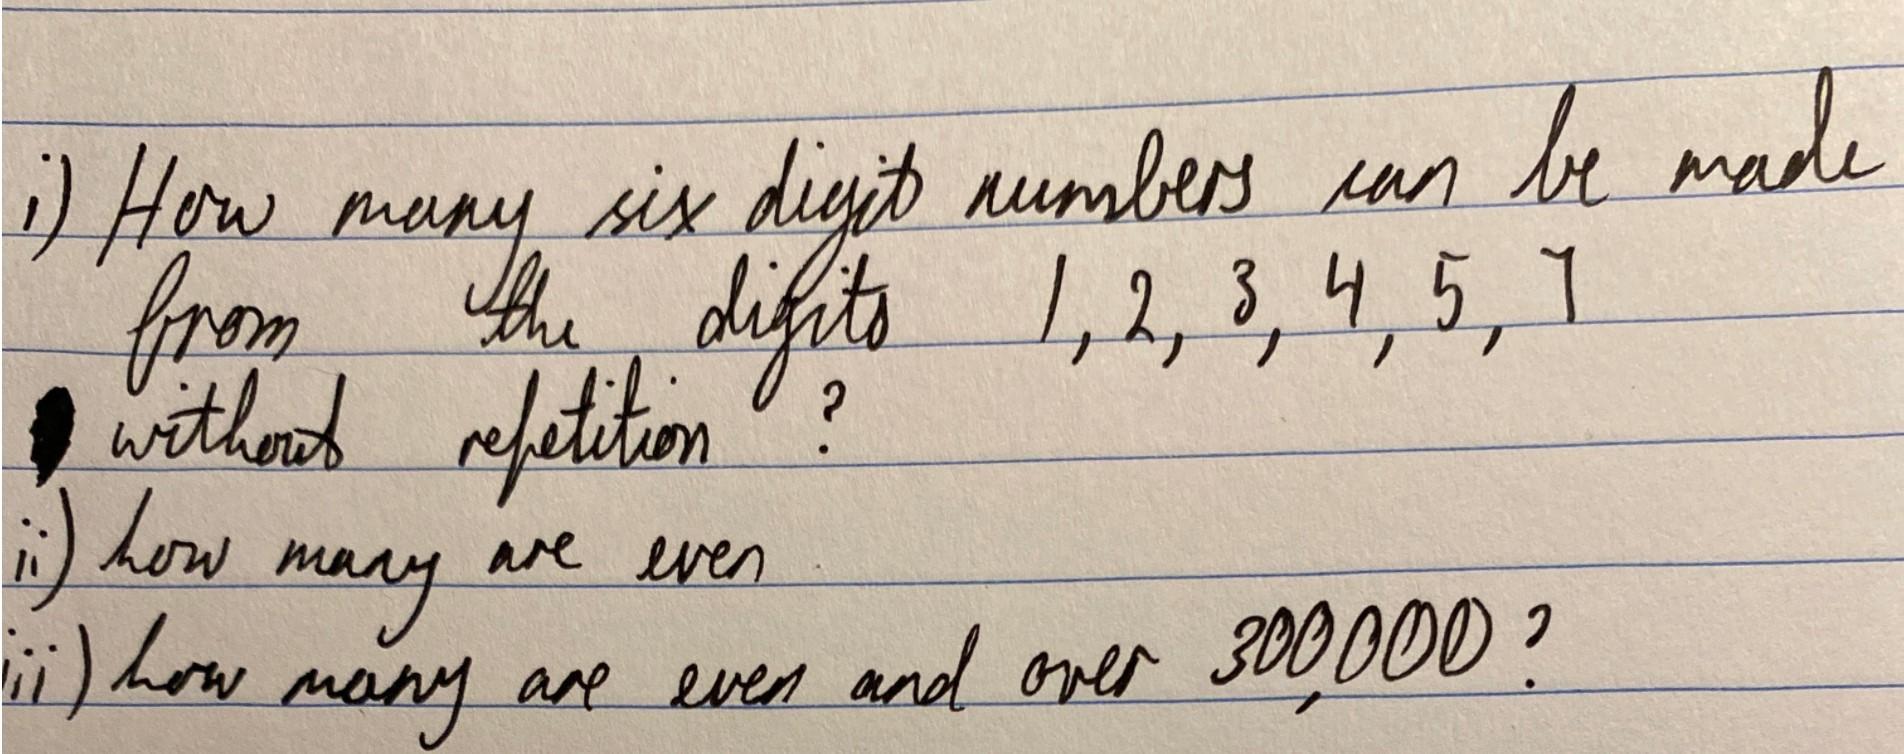 i) How many six digit numbers can be made
from the digits 1, 2, 3, 4, 5, 7
without repetition ?
ii) how many are even
iii) how many are even and over 300,000?